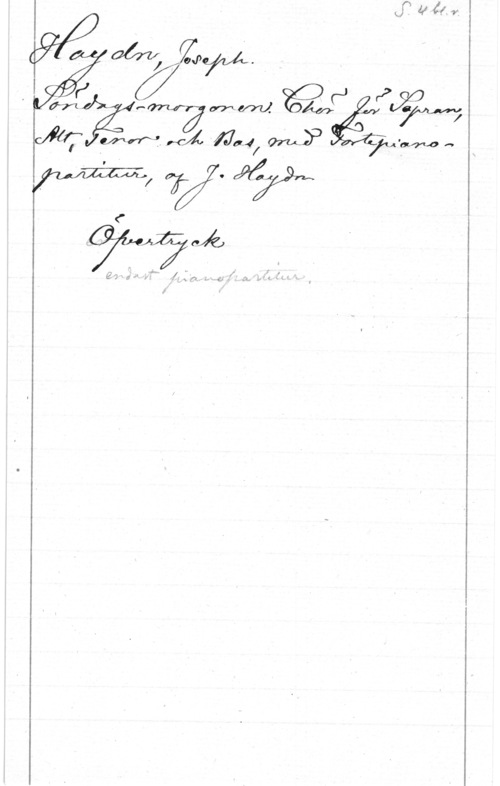 S 4 bl. v.
Haydn, Joseph.
Söndags-morgonen. Chör för Sopran,
Alt, Tenor och Bas, med Fortepiano-
partitur, af J. Haydn
Öfvertryck
endast pianopartitur.